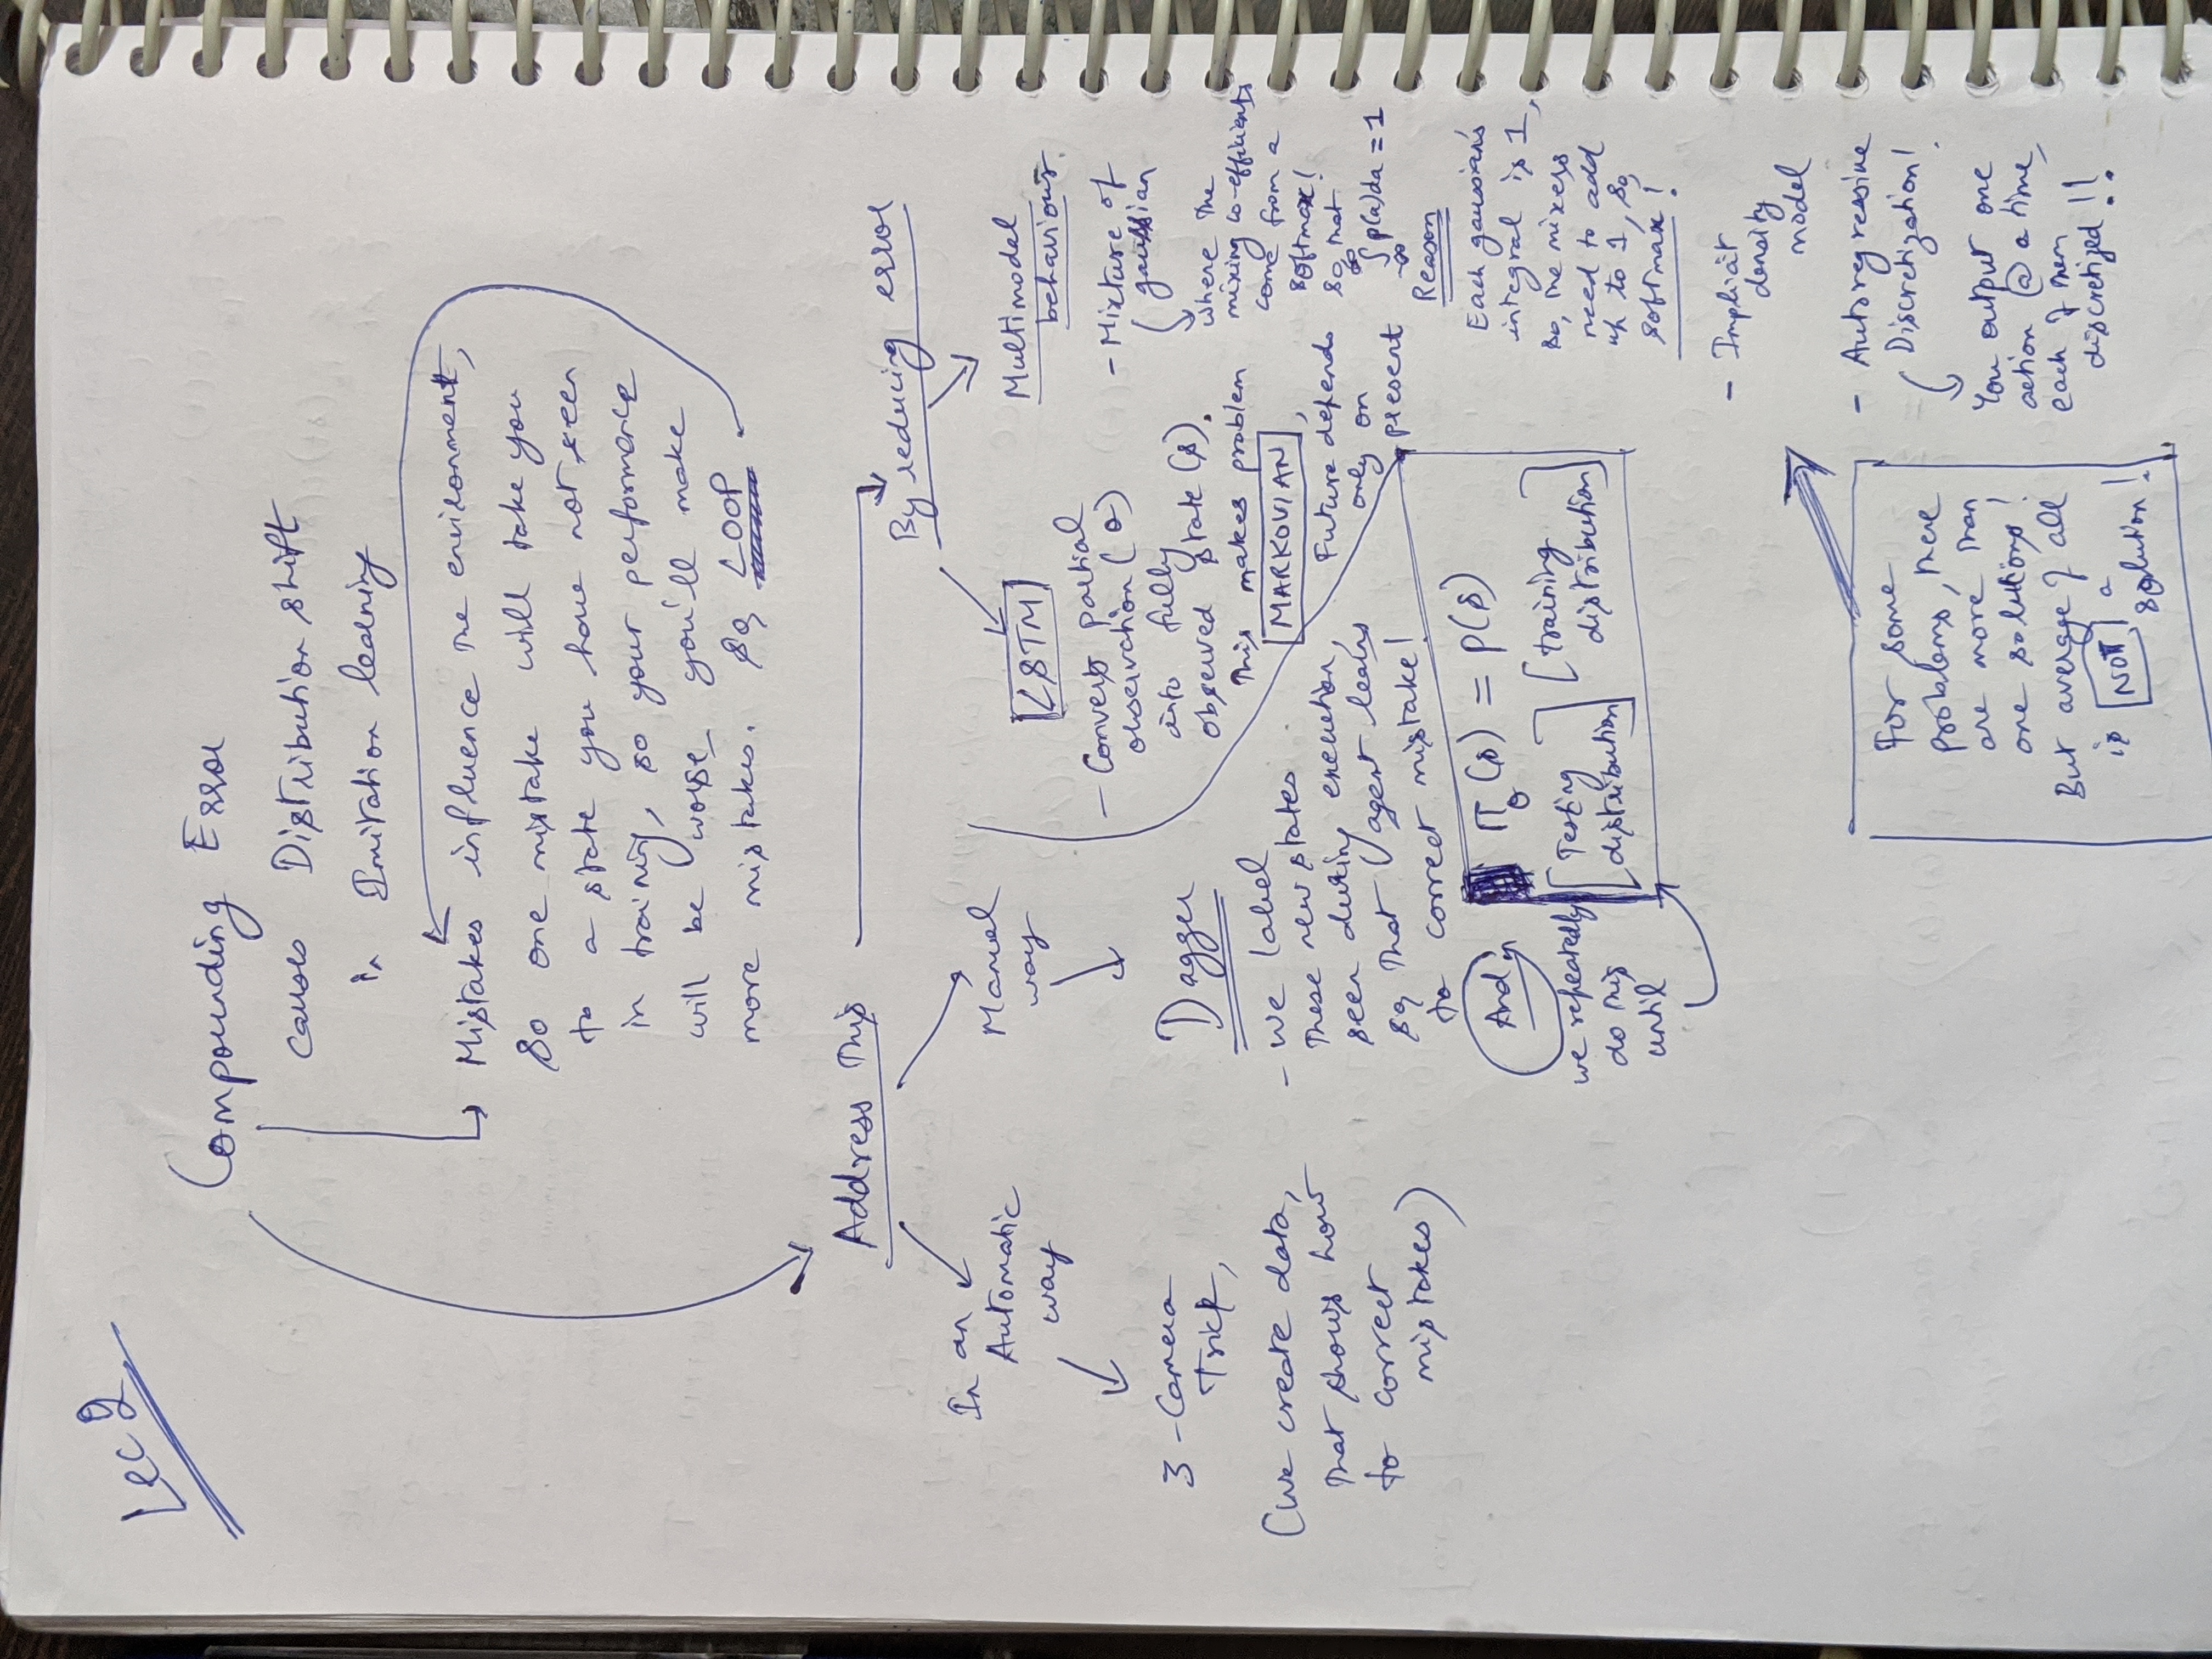 Lec 2
Compounding Error
causes Distribution shift
in Imitation learning
Mistakes influence the environment,
So one mistake will take you
to a state you have not seen
in training, so your performance
will be worse, you'll make
more mistakes. So, LOOP
Address This
In an
Automatic
way
3-Camera
Trick,
(We create data,
That shows how
to correct
mistakes)
Manual
way
Dagger
- We label
These new states
seen during execution,
So, That agent learns
to correct mistake!
And,
we repeatedly
do this
until
π_θ(s) = p(s)
[Testing
distribution]
[training
distribution]
By reducing error
LSTM
- Converts partial
observation (o)
into fully
observed state (s).
This makes problem
MARKOVIAN,
Future depends
only on
present
Multimodel
behaviours.
- Mixture of
gaussian
where the
mixing co-efficients
come from a
softmax!
So, that
∞
∫ p(a)da = 1
-∞
Reason
Each gaussian's
integral is 1,
so, the mixers
need to add
up to 1, so,
softmax!
- Implicit
density
model
- Autoregressive
Discretization!
You output one
action @ a time,
each of them
discretized!!
For some
problems, there
are more than
one solutions!
But average of all
is NOT a
solution!